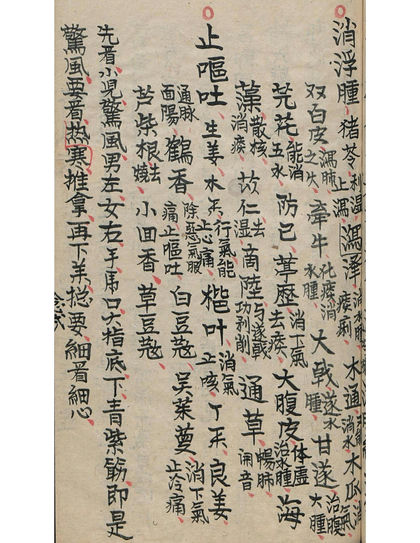 消浮腫 猪苓 利湿止瀉 瀉泽 消水腫痰痢 木通 消水 木瓜
双白皮 瀉肺之火 牽牛 消水腫 大戟 遂水腫 甘遂 治腹大腫
芫花 能消五水 防已 葶歷 消下氣去痰 大腹皮 体虚治水腫 海
藻 散核消痰 苡仁 去湿 商陸 与遂戟功利削 通草 暢肺 闹音
止嘔吐 生姜 木禾 行氣能止心痛 杷叶 消氣止咳 丁禾 良姜
通脉面陽 鶴香 除惡氣服痛止嘔吐 白豆蔻 吴茱萸 消下氣止冷痛
芦柴根 去燒 小回香 草豆蔻
先看小兒驚風男左女右手虎口大指底下青紫筋即是
驚風要看热寒推拿再下羙総要細看細心